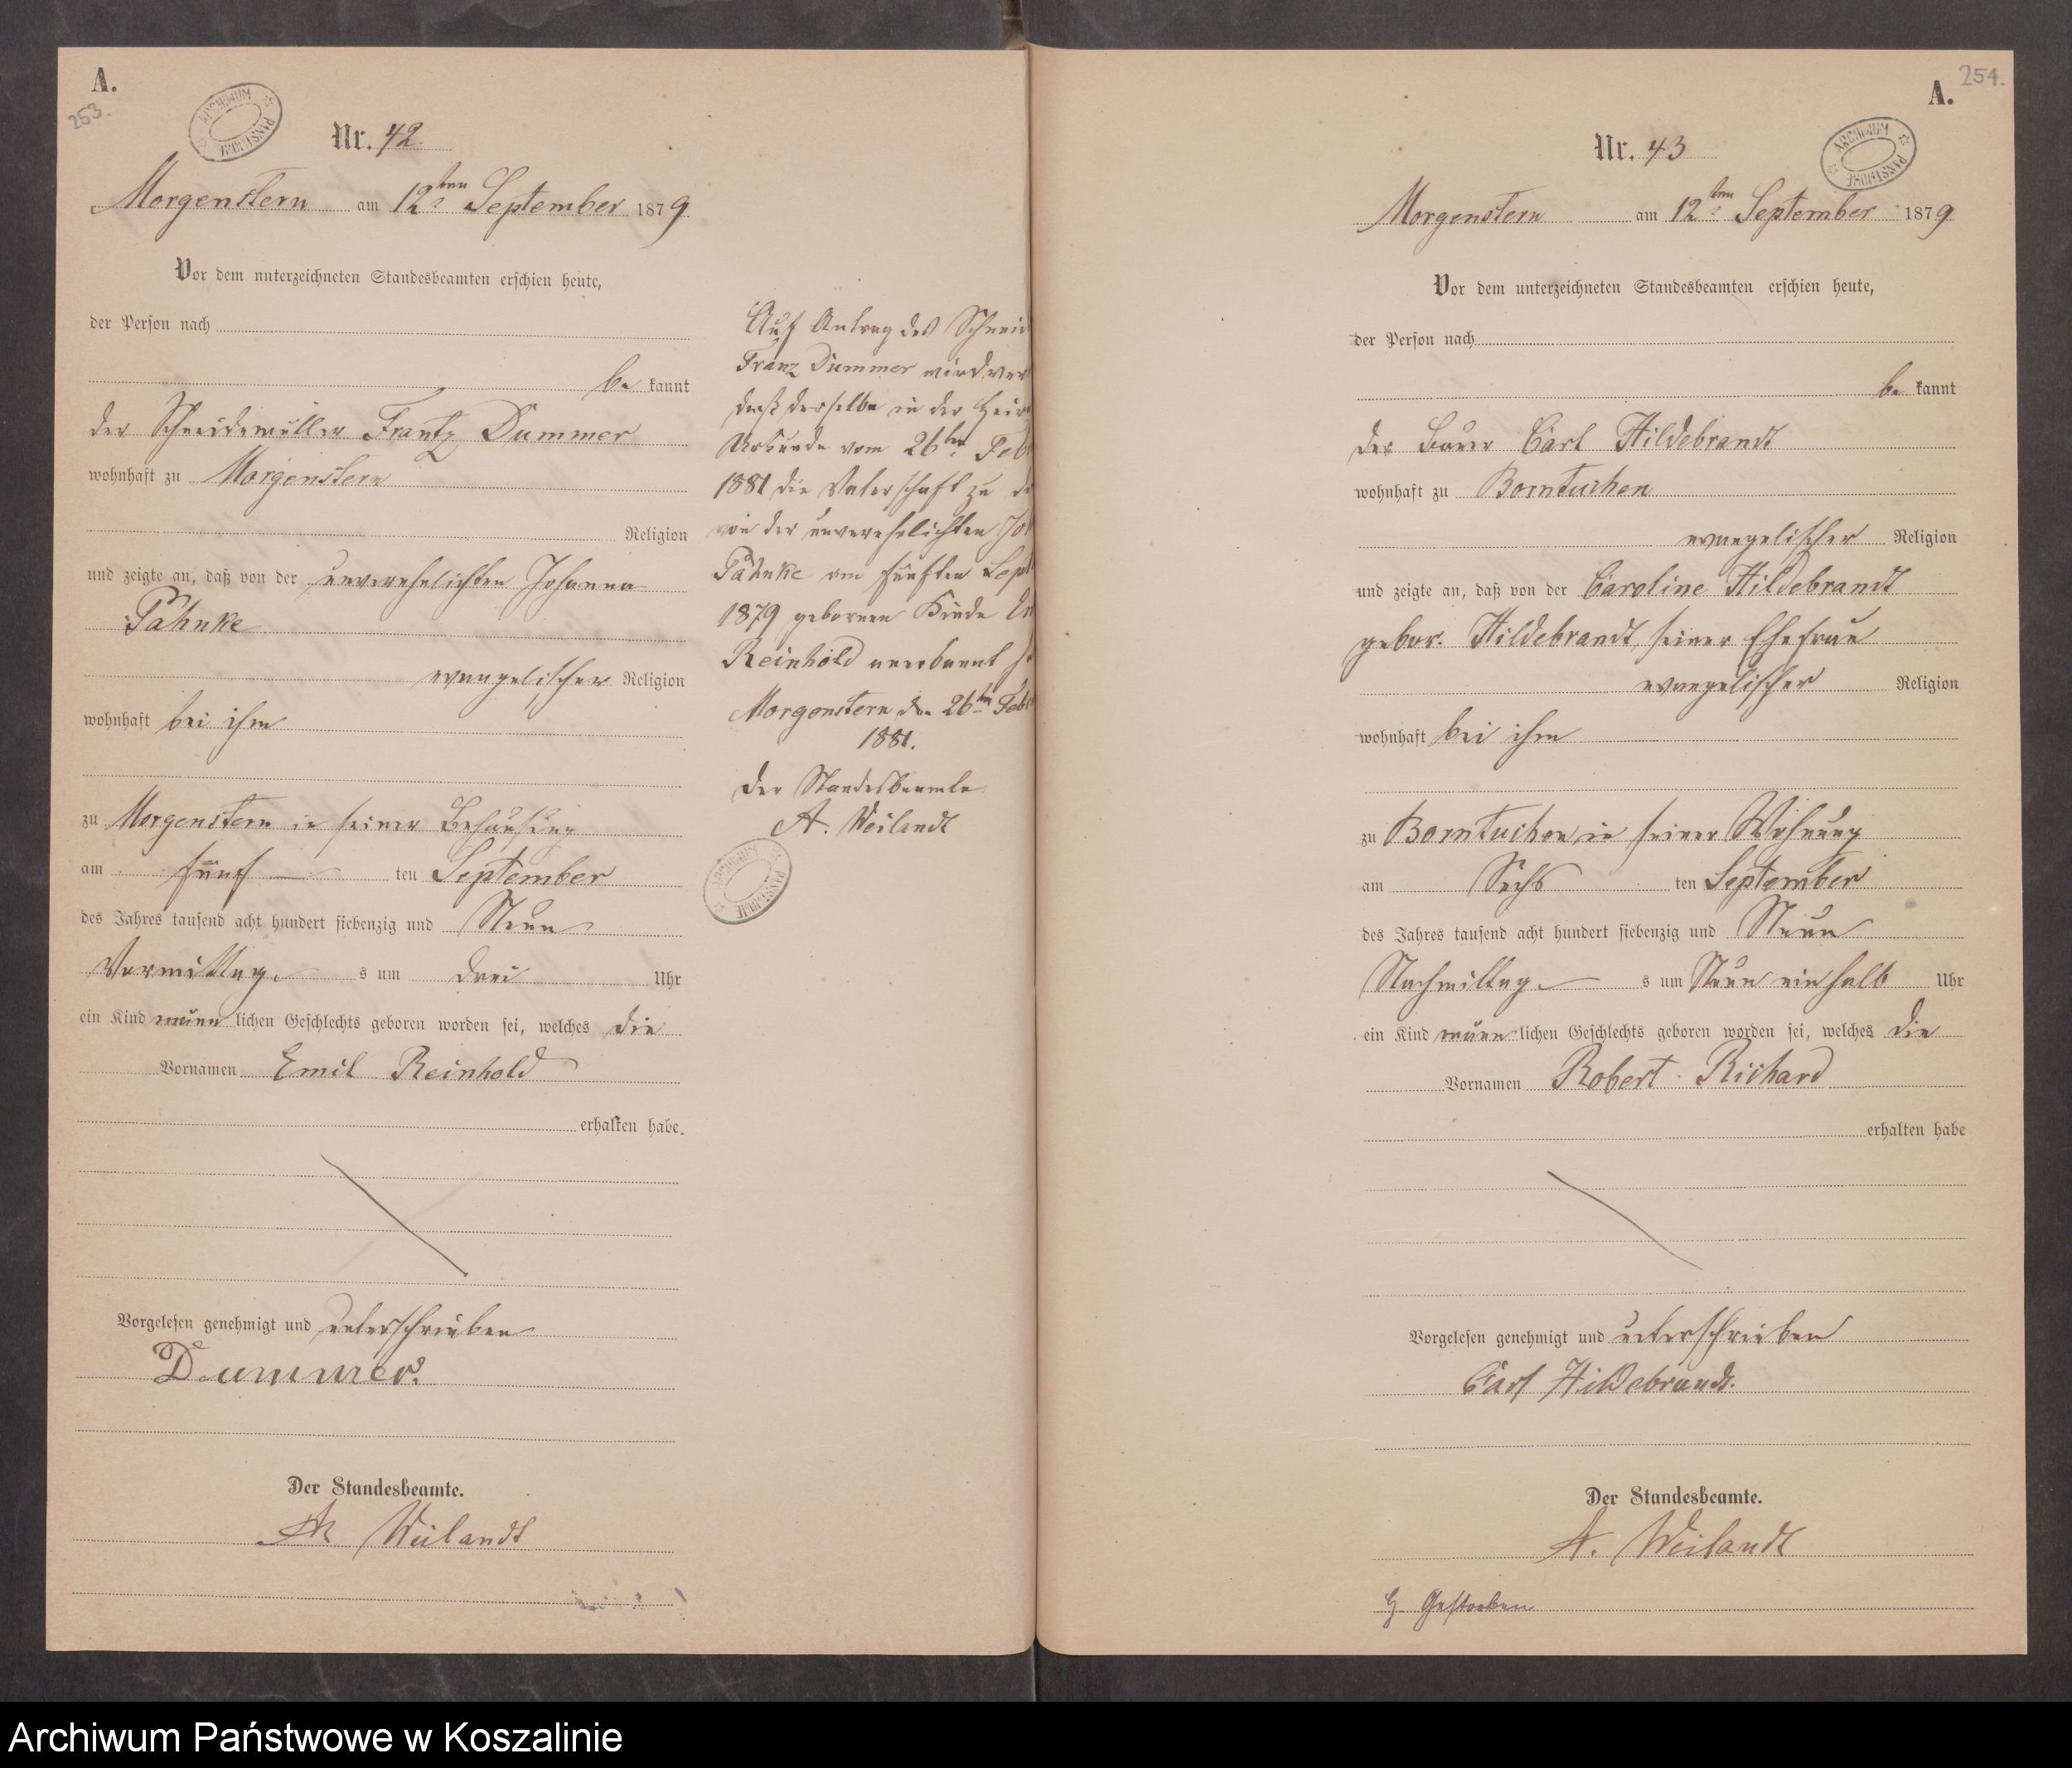 A.
253.
ARCHIWUM PAŃSTWOWE
Nr. 42.
Morgenstern am 12ten September 1879
Vor dem unterzeichneten Standesbeamten erschien heute,
der Person nach
be kannt
der Schneidemüller Frantz Dummer
wohnhaft zu Morgenstern
Religion
und zeigte an, daß von der unverehelichten Johanna
Pahnke
evangelischer Religion
wohnhaft bei ihm
zu Morgenstern in seiner Behausung
am fünf ten September
des Jahres tausend acht hundert siebenzig und Neun
Vormittag s um drei Uhr
ein Kind männlichen Geschlechts geboren worden sei, welches die
Vornamen Emil Reinhold
erhalten habe.
Vorgelesen genehmigt und unterschrieben
Dummer.
Der Standesbeamte.
A. Weilandt
Auf Antrag des Schneid
Franz Dummer wird ver
daß derselbe in der Heir
Urkunde vom 26ten Feb
1881 die Vaterschaft zu
von der unverehelichten Joh
Pahnke am fünften Sept
1879 gebornen Kinde Em
Reinhold anerkannt h
Morgenstern den 26ten Feb
1881.
Der Standesbeamte
A. Weilandt
ARCHIWUM PAŃSTWOWE
A.
254.
ARCHIWUM PAŃSTWOWE
Nr. 43
Morgenstern am 12ten September 1879
Vor dem unterzeichneten Standesbeamten erschien heute,
der Person nach
be kannt
der Bauer Carl Hildebrandt
wohnhaft zu Borntuchen
evangelischer Religion
und zeigte an, daß von der Caroline Hildebrandt
gebor. Hildebrandt, seiner Ehefrau
evangelischer Religion
wohnhaft bei ihm
zu Borntuchen in seiner Wohnung
am Sechs ten September
des Jahres tausend acht hundert siebenzig und Neun
Nachmittag s um Neun ein halb Uhr
ein Kind männlichen Geschlechts geboren worden sei, welches die
Vornamen Robert Richard
erhalten habe
Vorgelesen genehmigt und unterschrieben
Carl Hildebrandt.
Der Standesbeamte.
A. Weilandt
Gestorben
Archiwum Państwowe w Koszalinie